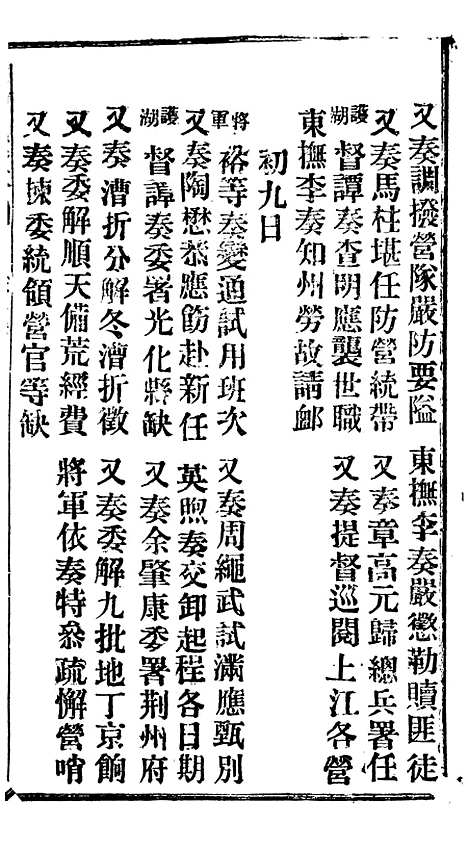 又奏調撥營隊嚴防要隘　東撫李奏嚴懲勒贖匪徒
又奏馬柱堪任防營統帶　又奏章高元歸總兵署任
護湖督譚奏查明應襲世職　又奏提督巡閱上江各營
東撫李奏知州勞故請卹
初九日
將軍裕等奏變通試用班次　又奏周繩武試滿應甄別
又奏陶懋恭應飭赴新任　英煦奏交卸起程各日期
護湖督譚奏委署光化縣缺　又奏余肇康委署荆州府
又奏漕折分解冬漕折徵　又奏委解九批地丁京餉
又奏委解順天備荒經費　將軍依奏特叅疏懈營哨
又奏揀委統領營官等缺